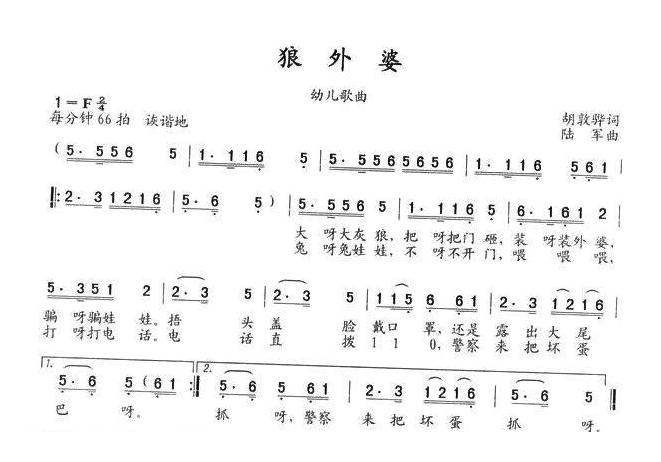 狼 外 婆
幼儿歌曲
1=F 2/4
每分钟 66 拍 诙谐地
胡敦骅词
陆 军曲
( 5. 5 5 6 5 | 1. 1 1 6 5 | 5. 5 5 6 5 6 5 5 | 1. 1 1 6 5 6 1 |
‖: 2. 3 1 2 1 6 | 5. 6 5 ) | 5. 5 5 6 5 | 1. 1 1 6 5 | 6. 1 6 1 2 |
大 呀大灰 狼,把 呀把门 砸,装 呀装外 婆,
兔 呀兔娃 娃,不 呀不开 门,喂 喂 喂,
5. 3 5 1 2 | 2. 3 5 | 2. 3 5 | 1 1 5 6 6 1 | 2. 3 1 2 1 6 |
骗 呀骗娃 娃。捂 头 盖 脸 戴口 罩,还是 露 出 大 尾
打 呀打电 话。电 话 直 拨 1 1 0,警察 来 把 坏 蛋
1. 5. 6 5 ( 6 1 ) :‖ 2. 5. 6 5 6 1 | 2. 3 1 2 1 6 | 5. 6 5 ‖
巴 呀。 抓 呀,警察 来 把 坏 蛋 抓 呀。